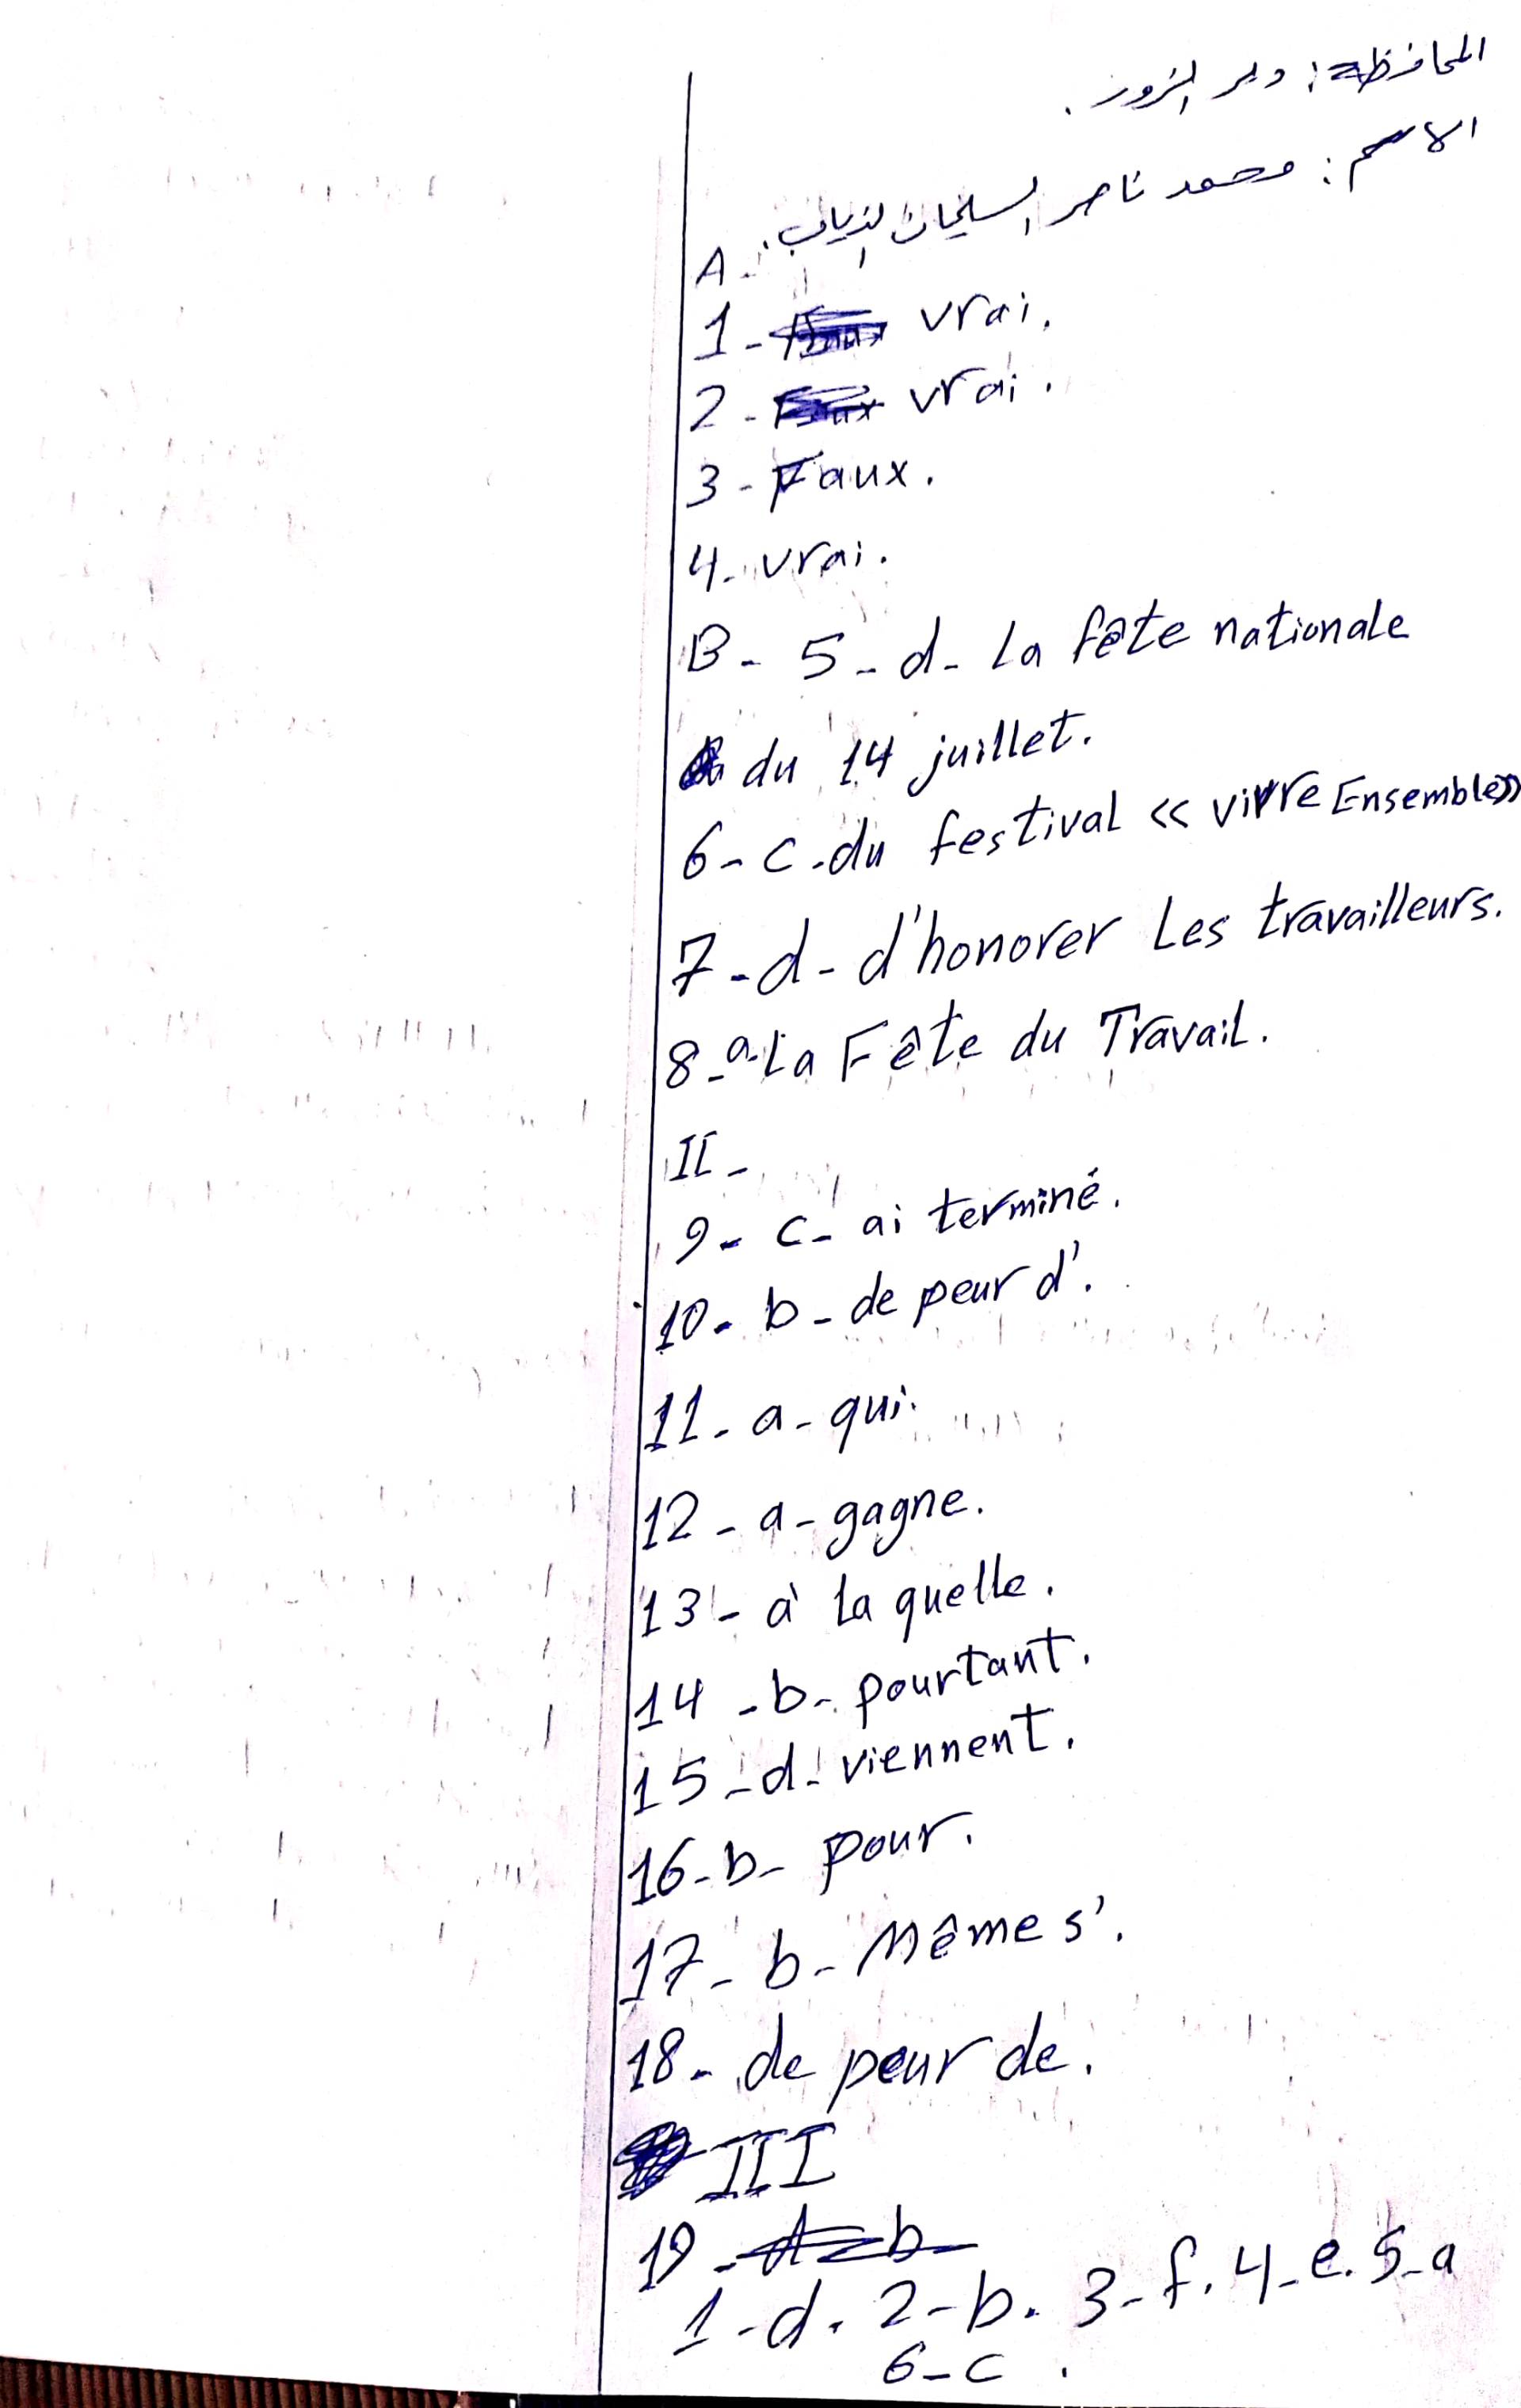 المحافظة: دير الزور.
الاسم: محمد ناصر السليمان الذياب.
A-
1- vrai.
2- Faux vrai.
3- Faux.
4- vrai.
B- 5-d- La fête nationale
du 14 juillet.
6-c-du festival << vivre Ensemble>>
7-d-d'honorer Les travailleurs.
8-a-La Fête du Travail.
II-
9-c-ai terminé.
10-b-de peur d'.
11-a-qui.
12-a-gagne.
13-à la quelle.
14-b-pourtant.
15-d-viennent.
16-b-pour.
17-b-Même s'.
18-de peur de.
III
19-
1-d. 2-b. 3-f. 4-e. 5-a
6-c.